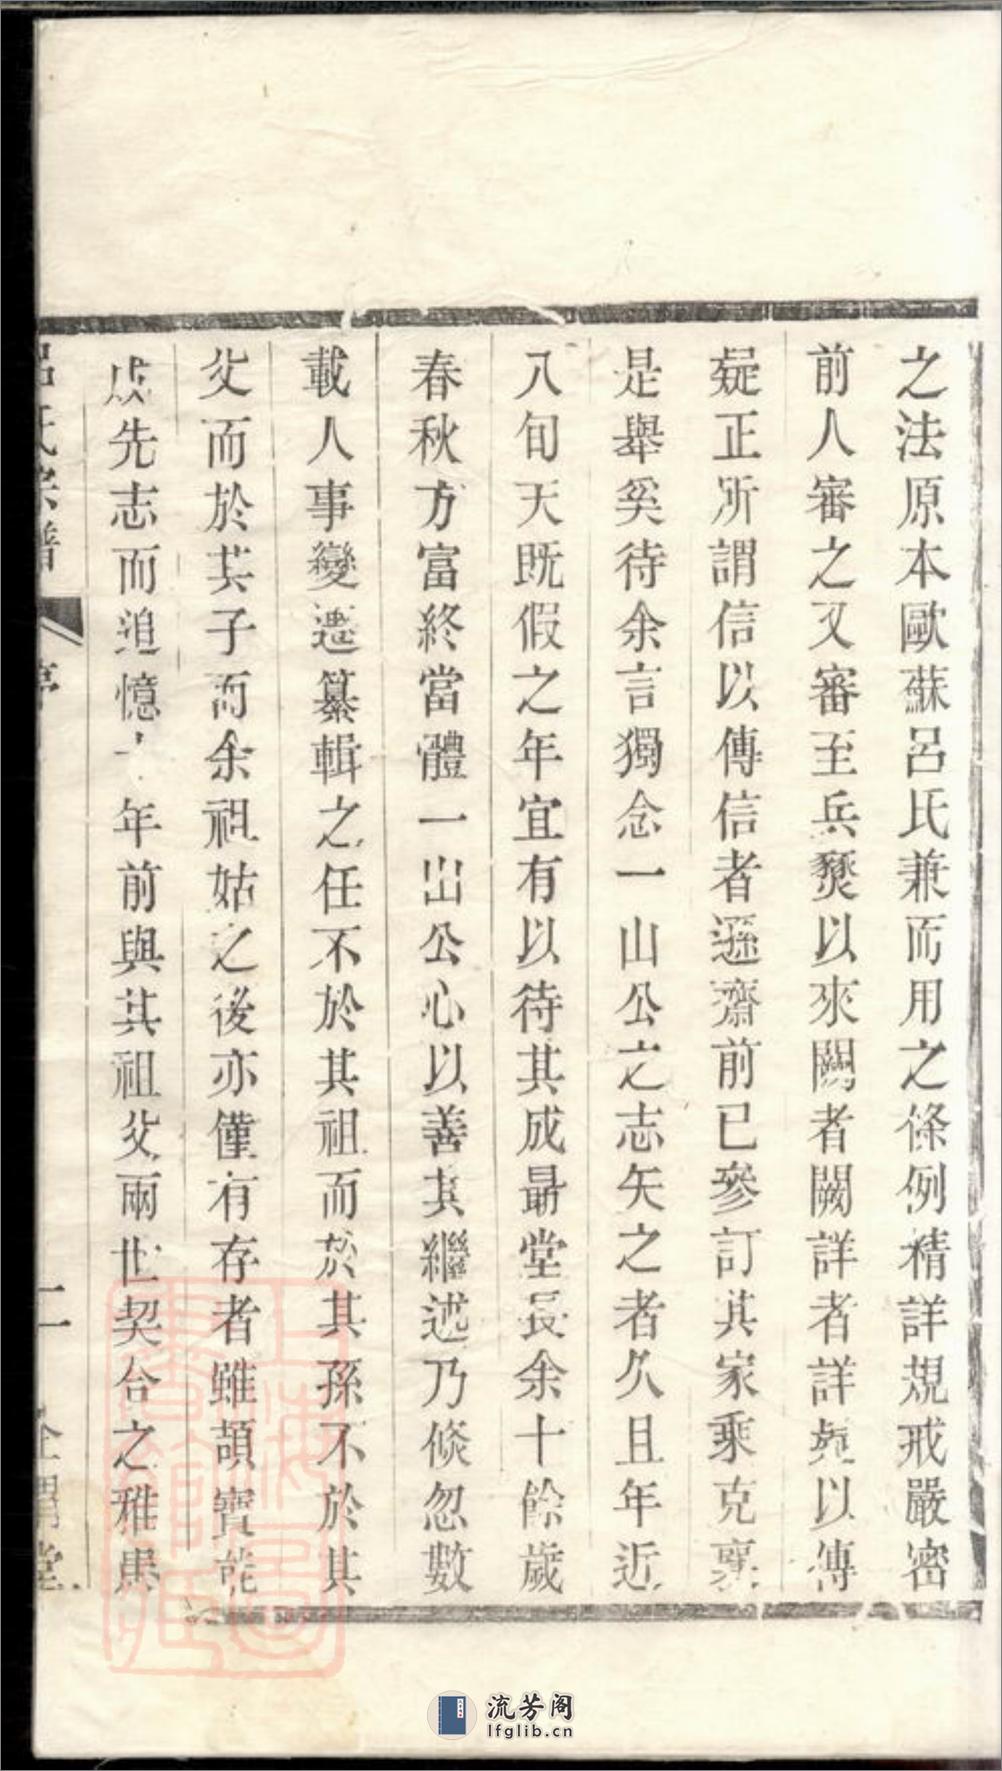 之法原本歐蘇呂氏兼而用之條例精詳規戒嚴密
前人審之又審至兵燹以來闕者闕詳者詳疑以傳
疑正所謂信以傳信者遜齋前已參訂其家乘克襄
是舉奚待余言獨念一山公之志矢之者久且年近
八旬天既假之年宜有以待其成最堂長余十餘歲
春秋方富終當體一山公心以善其繼述乃倏忽數
載人事變遷纂輯之任不於其祖而於其孫不於其
父而於其子而余祖姑之後亦僅有存者雖頡寶能
成先志而追憶十年前與其祖父兩世契合之雅患
呂氏宗譜
序
二
堂
上海圖書館藏
流芳阁
lfglib.cn